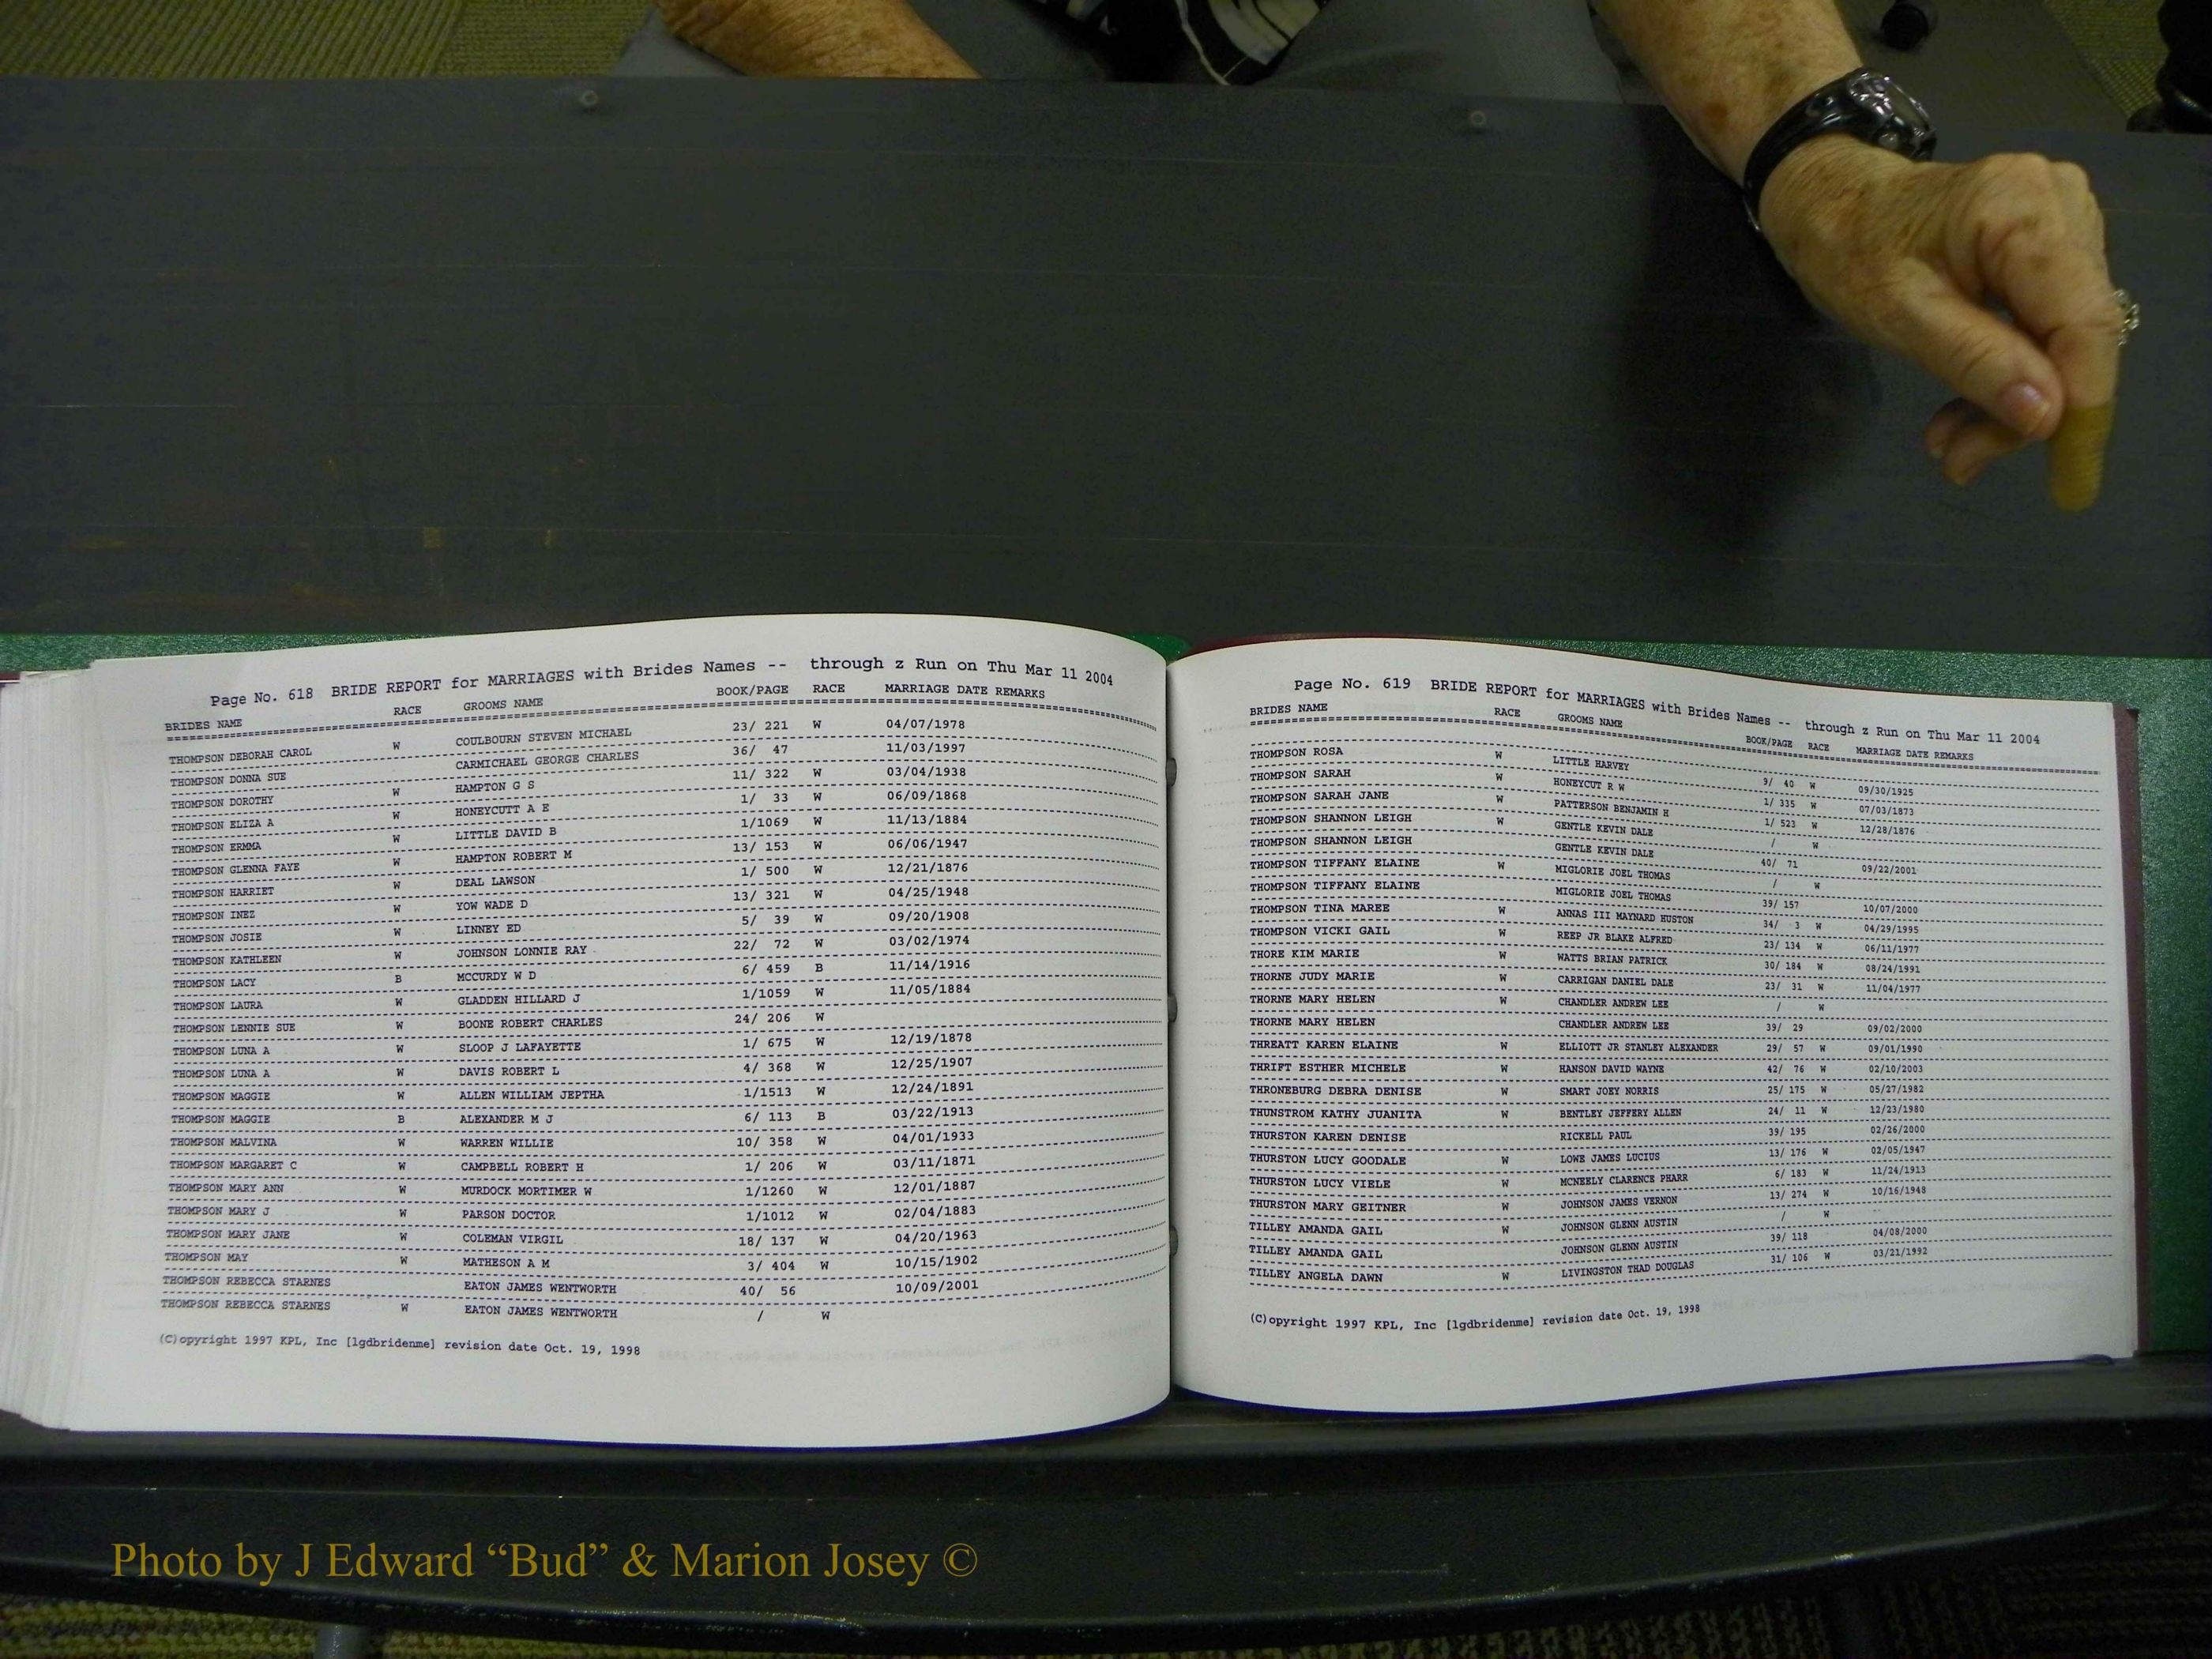 Page No. 618 BRIDE REPORT for MARRIAGES with Brides Names -- through z Run on Thu Mar 11 2004
BRIDES NAME RACE GROOMS NAME BOOK/PAGE RACE MARRIAGE DATE REMARKS
THOMPSON DEBORAH CAROL W COULBOURN STEVEN MICHAEL 23/ 221 W 04/07/1978
THOMPSON DONNA SUE CARMICHAEL GEORGE CHARLES 36/ 47 11/03/1997
THOMPSON DOROTHY W HAMPTON G S 11/ 322 W 03/04/1938
THOMPSON ELIZA A W HONEYCUTT A E 1/ 33 W 06/09/1868
THOMPSON ERMMA W LITTLE DAVID B 1/1069 W 11/13/1884
THOMPSON GLENNA FAYE W HAMPTON ROBERT M 13/ 153 W 06/06/1947
THOMPSON HARRIET W DEAL LAWSON 1/ 500 W 12/21/1876
THOMPSON INEZ W YOW WADE D 13/ 321 W 04/25/1948
THOMPSON JOSIE W LINNEY ED 5/ 39 W 09/20/1908
THOMPSON KATHLEEN W JOHNSON LONNIE RAY 22/ 72 W 03/02/1974
THOMPSON LACY B MCCURDY W D 6/ 459 B 11/14/1916
THOMPSON LAURA W GLADDEN HILLARD J 1/1059 W 11/05/1884
THOMPSON LENNIE SUE W BOONE ROBERT CHARLES 24/ 206 W
THOMPSON LUNA A W SLOOP J LAFAYETTE 1/ 675 W 12/19/1878
THOMPSON LUNA A W DAVIS ROBERT L 4/ 368 W 12/25/1907
THOMPSON MAGGIE W ALLEN WILLIAM JEPTHA 1/1513 W 12/24/1891
THOMPSON MAGGIE B ALEXANDER M J 6/ 113 B 03/22/1913
THOMPSON MALVINA W WARREN WILLIE 10/ 358 W 04/01/1933
THOMPSON MARGARET C W CAMPBELL ROBERT H 1/ 206 W 03/11/1871
THOMPSON MARY ANN W MURDOCK MORTIMER W 1/1260 W 12/01/1887
THOMPSON MARY J W PARSON DOCTOR 1/1012 W 02/04/1883
THOMPSON MARY JANE W COLEMAN VIRGIL 18/ 137 W 04/20/1963
THOMPSON MAY W MATHESON A M 3/ 404 W 10/15/1902
THOMPSON REBECCA STARNES EATON JAMES WENTWORTH 40/ 56 10/09/2001
THOMPSON REBECCA STARNES W EATON JAMES WENTWORTH / W
(C)opyright 1997 KPL, Inc [lgdbridenme] revision date Oct. 19, 1998
Page No. 619 BRIDE REPORT for MARRIAGES with Brides Names -- through z Run on Thu Mar 11 2004
BRIDES NAME RACE GROOMS NAME BOOK/PAGE RACE MARRIAGE DATE REMARKS
THOMPSON ROSA W LITTLE HARVEY 9/ 40 W 09/30/1925
THOMPSON SARAH W HONEYCUT R W 1/ 335 W 07/03/1873
THOMPSON SARAH JANE W PATTERSON BENJAMIN H 1/ 523 W 12/28/1876
THOMPSON SHANNON LEIGH W GENTLE KEVIN DALE / W
THOMPSON SHANNON LEIGH GENTLE KEVIN DALE 40/ 71 09/22/2001
THOMPSON TIFFANY ELAINE W MIGLORIE JOEL THOMAS / W
THOMPSON TIFFANY ELAINE MIGLORIE JOEL THOMAS 39/ 157 10/07/2000
THOMPSON TINA MAREE W ANNAS III MAYNARD HUSTON 34/ 3 W 04/29/1995
THOMPSON VICKI GAIL W REEP JR BLAKE ALFRED 23/ 134 W 06/11/1977
THORE KIM MARIE W WATTS BRIAN PATRICK 30/ 184 W 08/24/1991
THORNE JUDY MARIE W CARRIGAN DANIEL DALE 23/ 31 W 11/04/1977
THORNE MARY HELEN W CHANDLER ANDREW LEE / W
THORNE MARY HELEN CHANDLER ANDREW LEE 39/ 29 09/02/2000
THREATT KAREN ELAINE W ELLIOTT JR STANLEY ALEXANDER 29/ 57 W 09/01/1990
THRIFT ESTHER MICHELE W HANSON DAVID WAYNE 42/ 76 W 02/10/2003
THRONEBURG DEBRA DENISE W SMART JOEY NORRIS 25/ 175 W 05/27/1982
THUNSTROM KATHY JUANITA W BENTLEY JEFFERY ALLEN 24/ 11 W 12/23/1980
THURSTON KAREN DENISE RICKELL PAUL 39/ 195 02/26/2000
THURSTON LUCY GOODALE W LOWE JAMES LUCIUS 13/ 176 W 02/05/1947
THURSTON LUCY VIELE W MCNEELY CLARENCE PHARR 6/ 183 W 11/24/1913
THURSTON MARY GEITNER W JOHNSON JAMES VERNON 13/ 274 W 10/16/1948
TILLEY AMANDA GAIL W JOHNSON GLENN AUSTIN / W
TILLEY AMANDA GAIL JOHNSON GLENN AUSTIN 39/ 118 04/08/2000
TILLEY ANGELA DAWN W LIVINGSTON THAD DOUGLAS 31/ 106 W 03/21/1992
(C)opyright 1997 KPL, Inc [lgdbridenme] revision date Oct. 19, 1998
Photo by J Edward “Bud” & Marion Josey ©